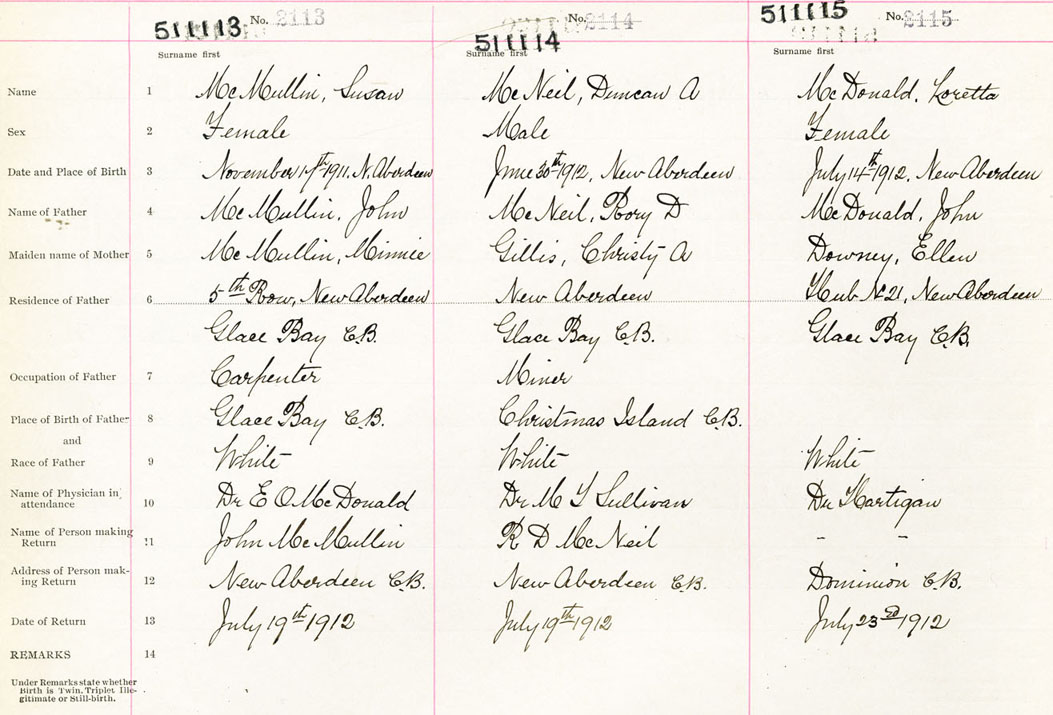 511113 No. 2113 511114 No. 2114 511115 No. 2115
Surname first Surname first Surname first
Name 1 McMullin, Susan McNeil, Duncan A McDonald, Loretta
Sex 2 Female Male Female
Date and Place of Birth 3 November 17th 1911. N. Aberdeen June 30th 1912, New Aberdeen July 14th 1912, New Aberdeen
Name of Father 4 McMullin, John McNeil, Rory D McDonald, John
Maiden name of Mother 5 McMullin, Minnie Gillis, Christy A Downey, Ellen
Residence of Father 6 5th Row, New Aberdeen New Aberdeen Hub No 21, New Aberdeen
Glace Bay C.B. Glace Bay C.B. Glace Bay C.B.
Occupation of Father 7 Carpenter Miner
Place of Birth of Father 8 Glace Bay C.B. Christmas Island C.B.
and
Race of Father 9 White White White
Name of Physician in
attendance 10 Dr E O McDonald Dr M T Sullivan Dr Hartigan
Name of Person making
Return 11 John McMullin R D McNeil - -
Address of Person mak-
ing Return 12 New Aberdeen C.B. New Aberdeen C.B. Dominion C.B.
Date of Return 13 July 19th 1912 July 19th 1912 July 23rd 1912
REMARKS 14
Under Remarks state whether
Birth is Twin, Triplet Ille-
gitimate or Still-birth.